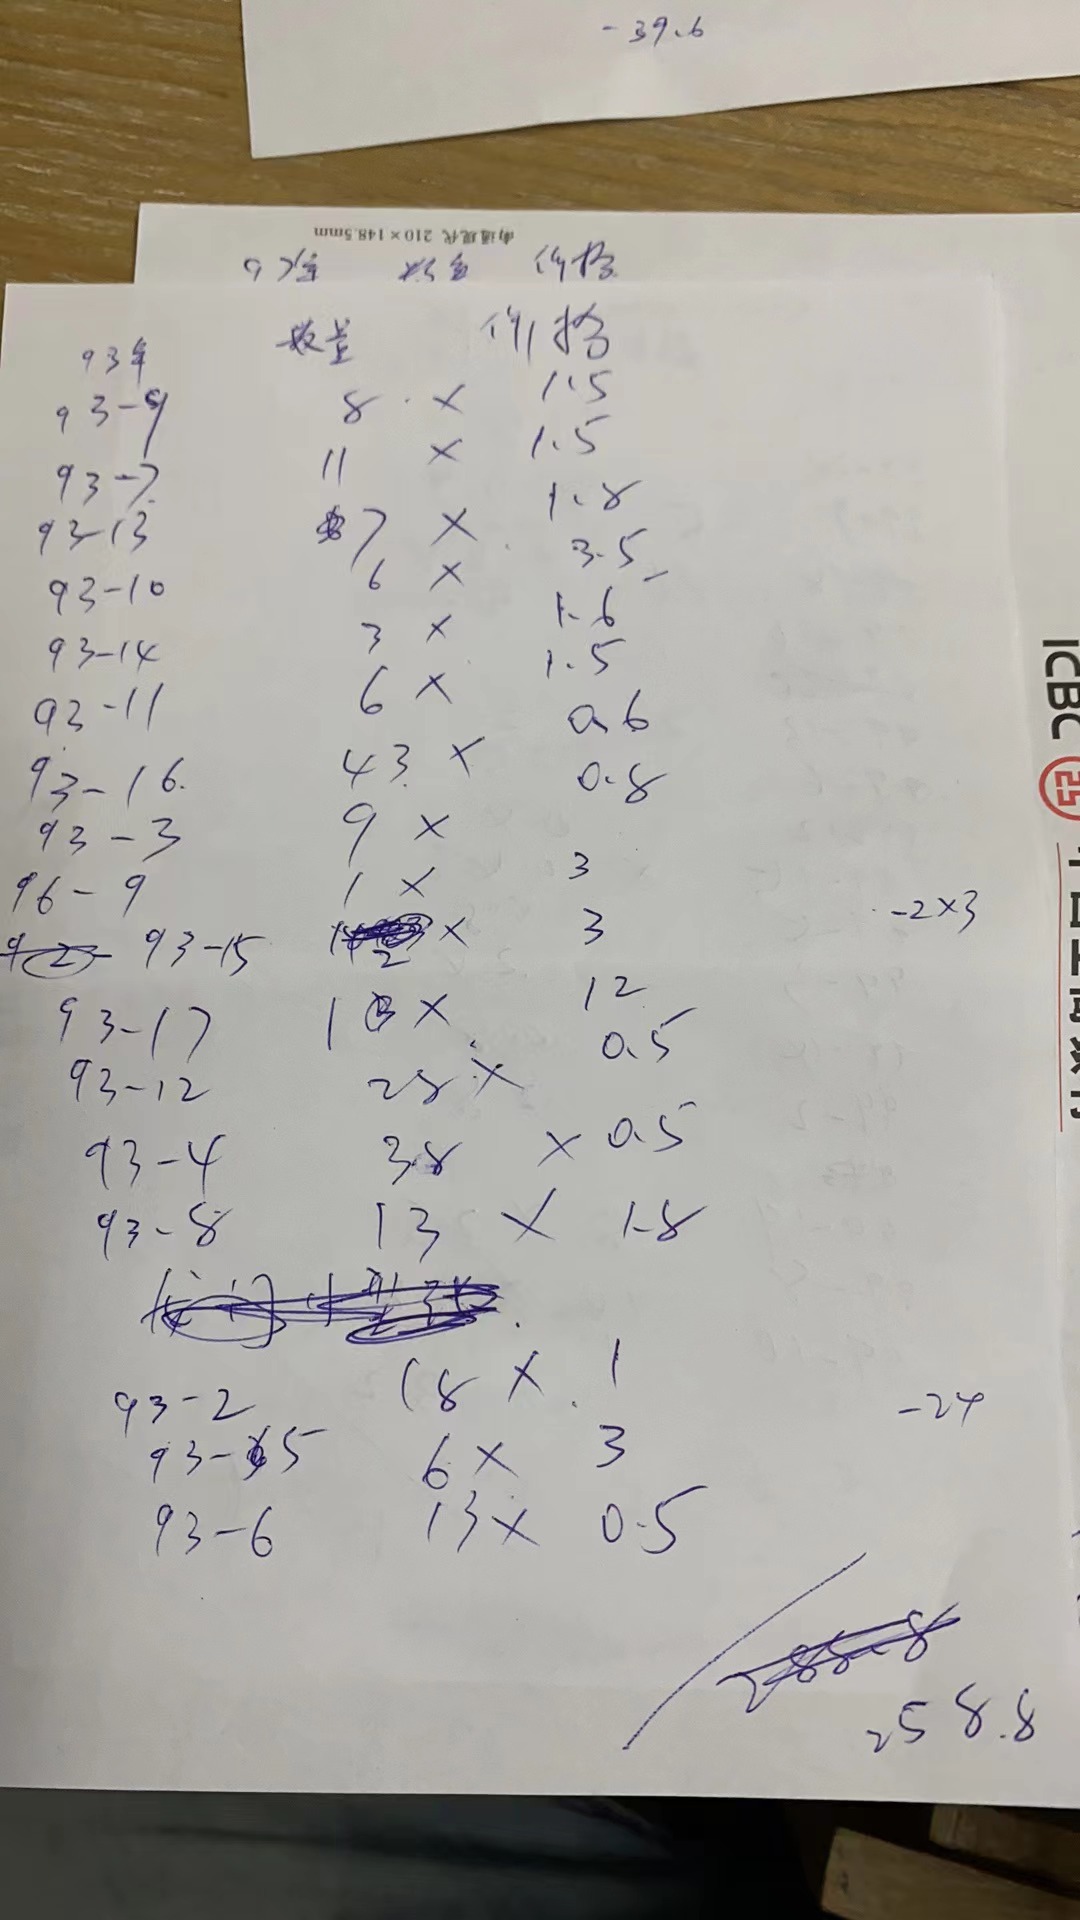 -39.6
南通现代 210×148.5mm
数量 价格
93年 数量 价格
93-9 8 × 1.5
93-7 11 × 1.5
93-13 7 × 1.8
93-10 6 × 3.5
93-14 3 × 1.6
93-11 6 × 1.5
93-16 43 × 0.6
93-3 9 × 0.8
96-9 1 × 3
93-15 2 × 3 -2×3
93-17 1 × 12
93-12 28 × 0.5
93-4 38 × 0.5
93-8 13 × 1.8
93-2 18 × 1
93-5 6 × 3 -24
93-6 13 × 0.5
288.8
258.8
ICBC 中国工商银行